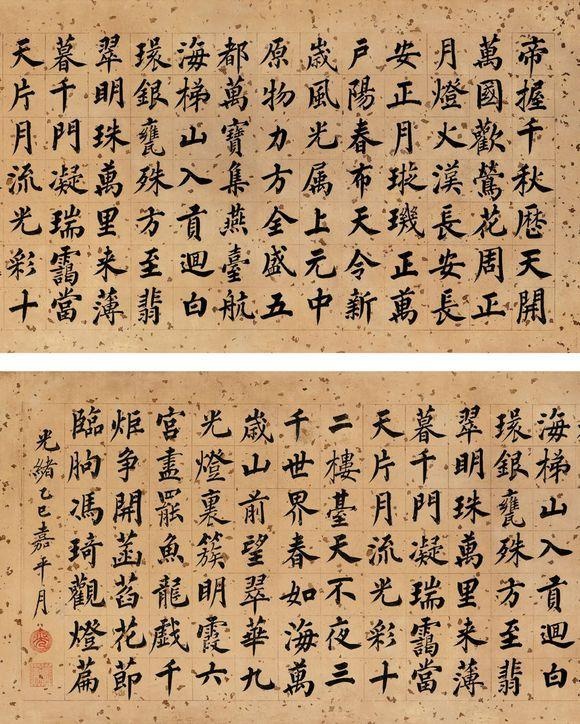 帝握千秋歴天開
萬國歡鶯花周正
月燈火漢長安長
安正月璇璣正萬
戶陽春布天令新
歳風光属上元中
原物力方全盛五
都萬寶集燕臺航
海梯山入貢迴白
環銀甕殊方至翡
翠明珠萬里来薄
暮千門凝瑞靄當
天片月流光彩十
海梯山入貢迴白
環銀甕殊方至翡
翠明珠萬里来薄
暮千門凝瑞靄當
天片月流光彩十
二樓臺天不夜三
千世界春如海萬
歳山前望翠華九
光燈裏簇明霞六
宮盡罷魚龍戲千
炬争開菡萏花節
臨朐馮琦觀燈篇
光緒乙巳嘉平月